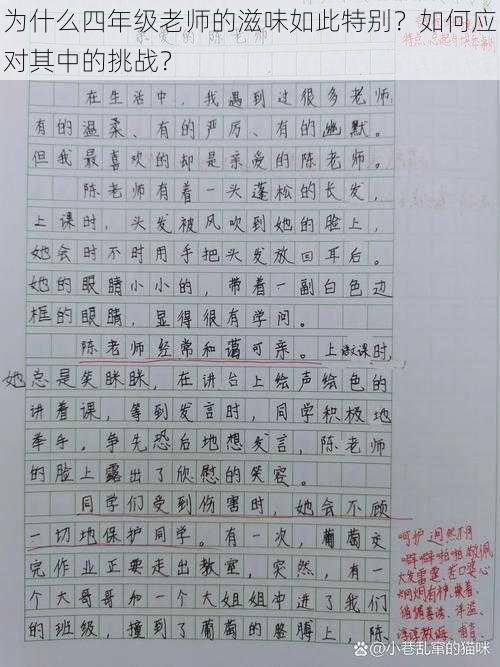 为什么四年级老师的滋味如此特别？如何应
对其中的挑战？
亲爱的陈老师
在生活中，我遇到过很多老师
有的温柔、有的严厉、有的幽默。
但我最喜欢的却是亲爱的陈老师。
陈老师有着一头蓬松的长发，
上课时，头发被风吹到她的脸上，
她会时不时用手把头发放回耳后。
她的眼睛小小的，带着一副白色边
框的眼睛，显得很有学问。
陈老师经常和蔼可亲。上课时，
她总是笑眯眯，在讲台上绘声绘色的
讲着课，等到发言时，同学积极地
举手，争先恐后地想发言，陈老师
的脸上露出了欣慰的笑容。
同学们受到伤害时，她会不顾
一切地保护同学。有一次，葡萄交
完作业正要走出教室，突然，有一
个大哥哥和一个大姐姐冲进了我们
的班级，撞到了葡萄的胳膊上，陈
呵护 迥然不同
噼噼啪啪 敬佩
大发雷霆 苦口婆心
炯炯有神 执着
循循善诱 洋溢
谆谆教诲
@小巷乱窜的猫咪